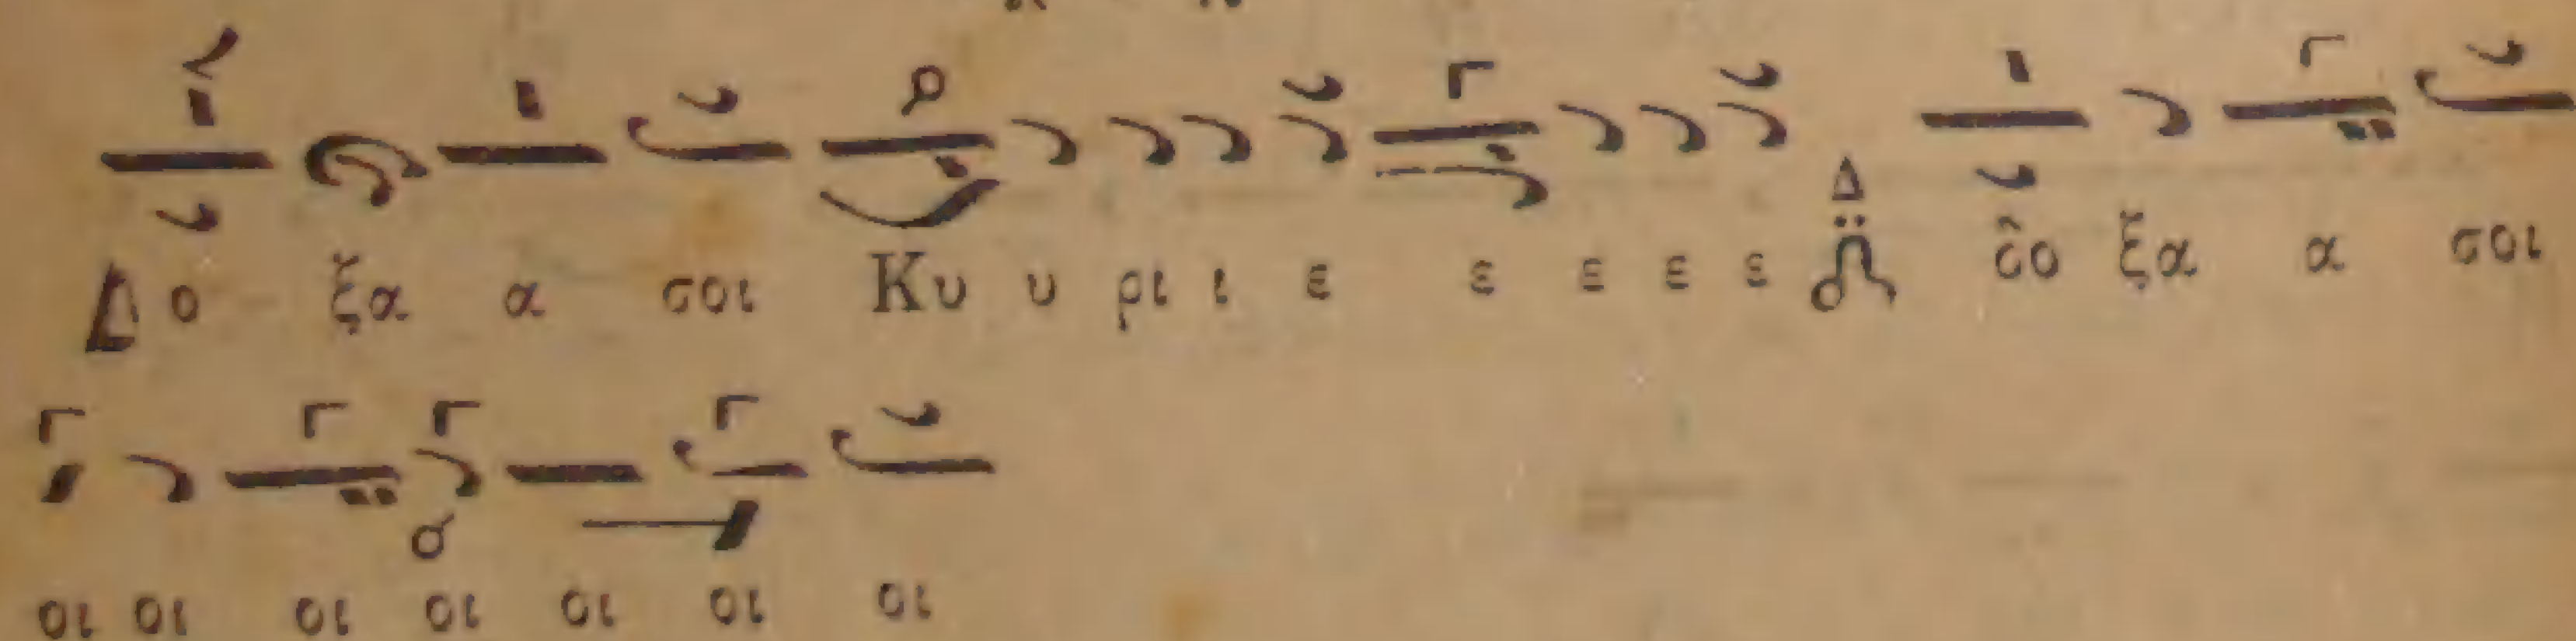 Δο ξα α σοι Κυ υ ρι ι ε ε ε ε ε Δ δο ξα α σοι
οι οι οι οι οι οι οι